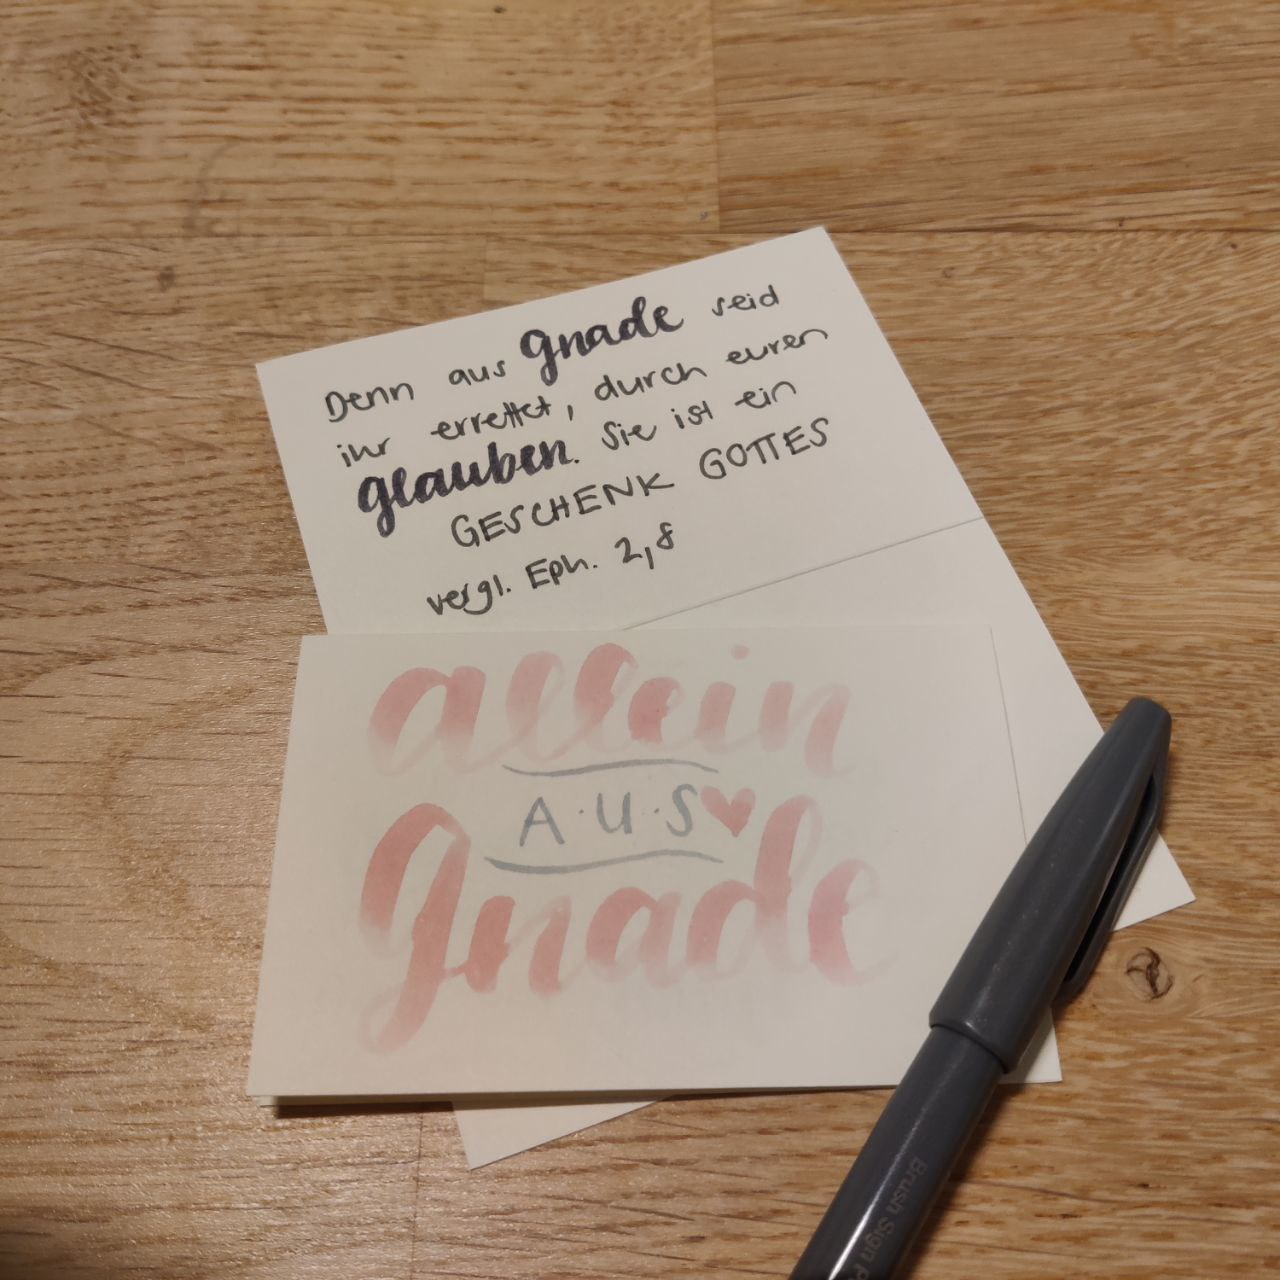 Denn aus Gnade seid
ihr errettet, durch euren
glauben. Sie ist ein
GESCHENK GOTTES
vergl. Eph. 2,8
allein
A·U·S
Gnade
Brush Sign